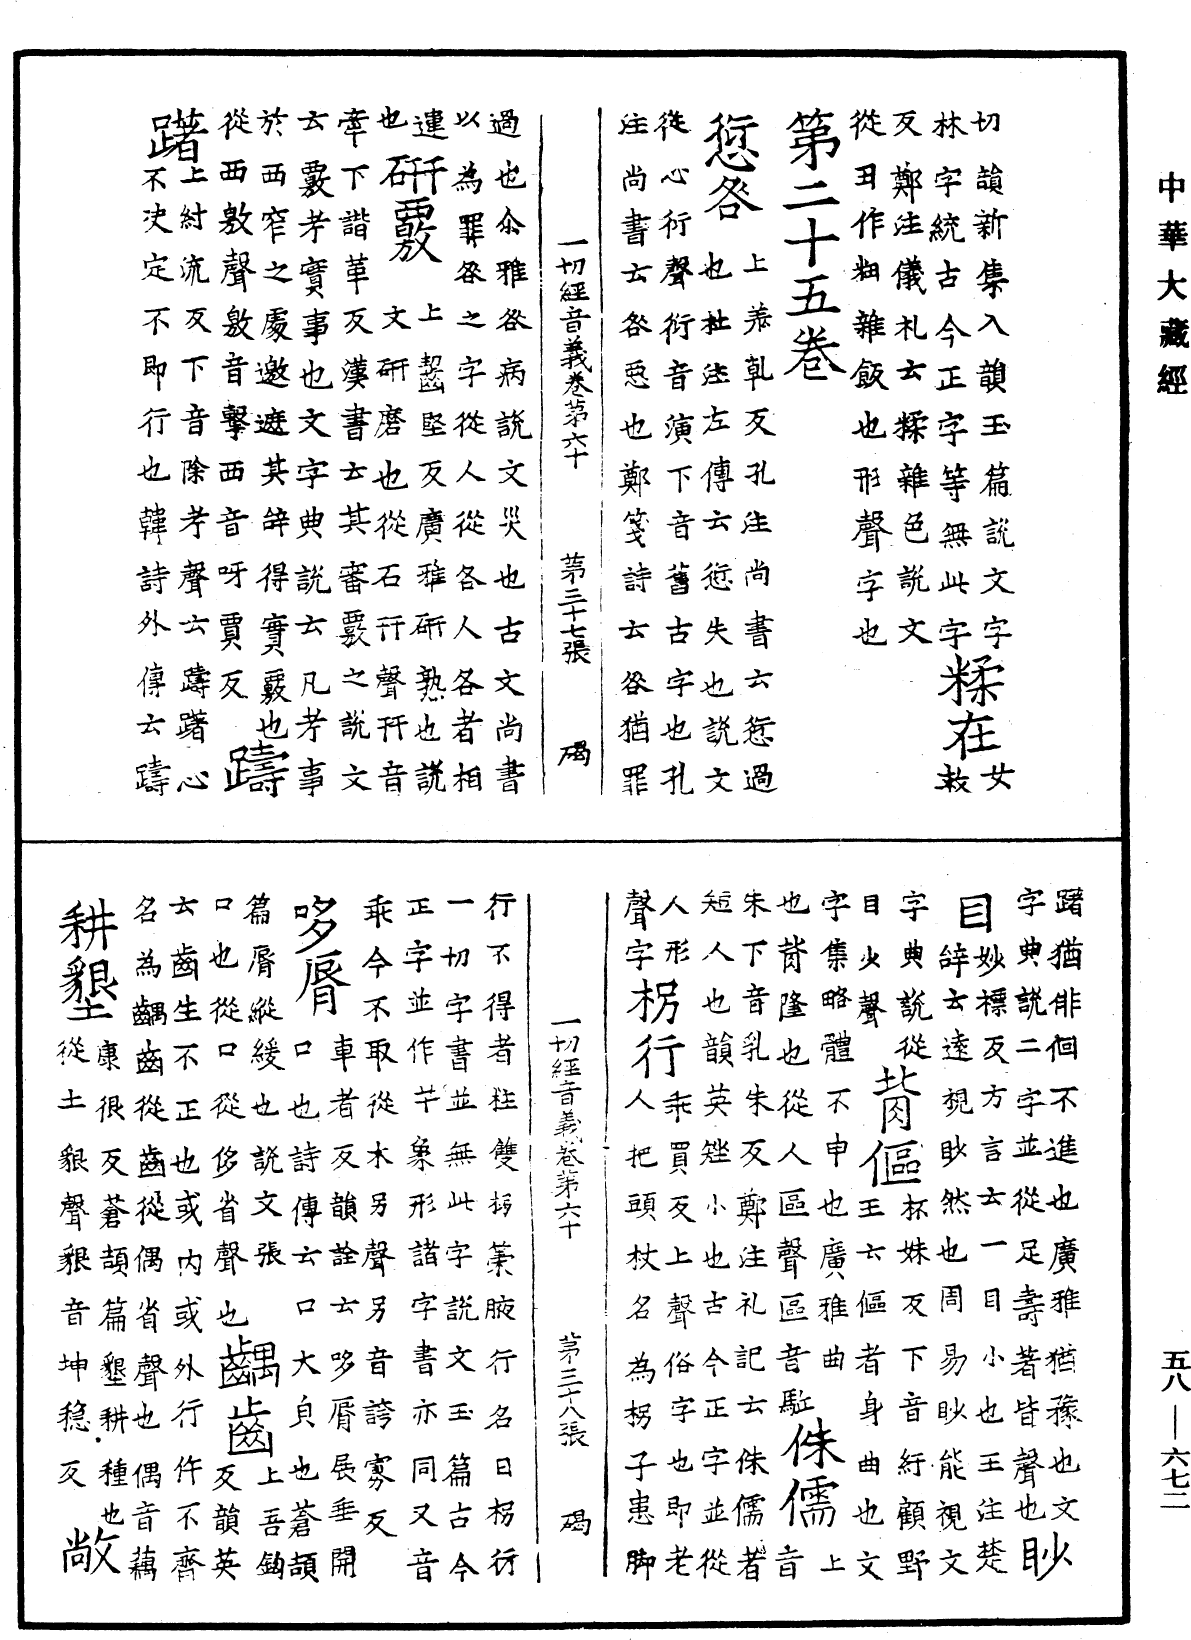 中華大藏經
切韻新集入韻玉篇說文字
林字統古今正字等無此字糅在女救
反鄭注儀礼云糅雜色說文
從丑作粈雜飯也形聲字也
第二十五卷
愆咎上羗乹反孔注尚書云愆過
也杜注左傳云愆失也說文
從心衍聲衍音演下音舊古字也孔
注尚書云咎惡也鄭箋詩云咎猶罪
一切經音義卷第六十 第三十七張 碣
過也尒雅咎病說文災也古文尚書
以為罪咎之字從人從各人各者相
連研覈上齧堅反廣雅研熟也說
也文研磨也從石幵聲幵音
牽下諧革反漢書云其審覈之說文
云覈考實事也文字典說云凡考事
於西窄之處邀遮其辝得實覈也
從西敫聲敫音擊西音呀賈反躊
躇上紂流反下音除考聲云躊躇心
不決定不即行也韓詩外傳云躊
躇猶俳佪不進也廣雅猶豫也文
字典說二字並從足壽著皆聲也眇
目妙標反方言云一目小也王注楚
辝云遠視眇然也周易眇能視文
字典說從
目少聲背傴杯妹反下音紆顧野
王云傴者身曲也文
字集略體不申也廣雅曲上
也背隆也從人區聲區音駈侏儒音
朱下音乳朱反鄭注礼記云侏儒者
短人也韻英矬小也古今正字並從
人形
聲字枴行乖買反上聲俗字也即老
人把頭杖名為枴子患脚
一切經音義卷第六十 第三十八張 碣
行不得者柱雙枴䇿腋行名曰枴行
一切字書並無此字說文玉篇古今
正字並作𠁥象形諸字書亦同又音
乖今不取從木另聲另音誇寡反
哆脣車者反韻詮云哆脣展垂開
口也詩傳云口大皃也蒼頡
篇脣縱緩也說文張
口也從口從侈省聲也齵齒上吾鈎
反韻英
云齒生不正也或內或外行仵不齊
名為齵齒從齒從偶省聲也偶音藕
耕墾康很反蒼頡篇墾耕種也
從土貇聲貇音坤穏反敞
五八—六七二